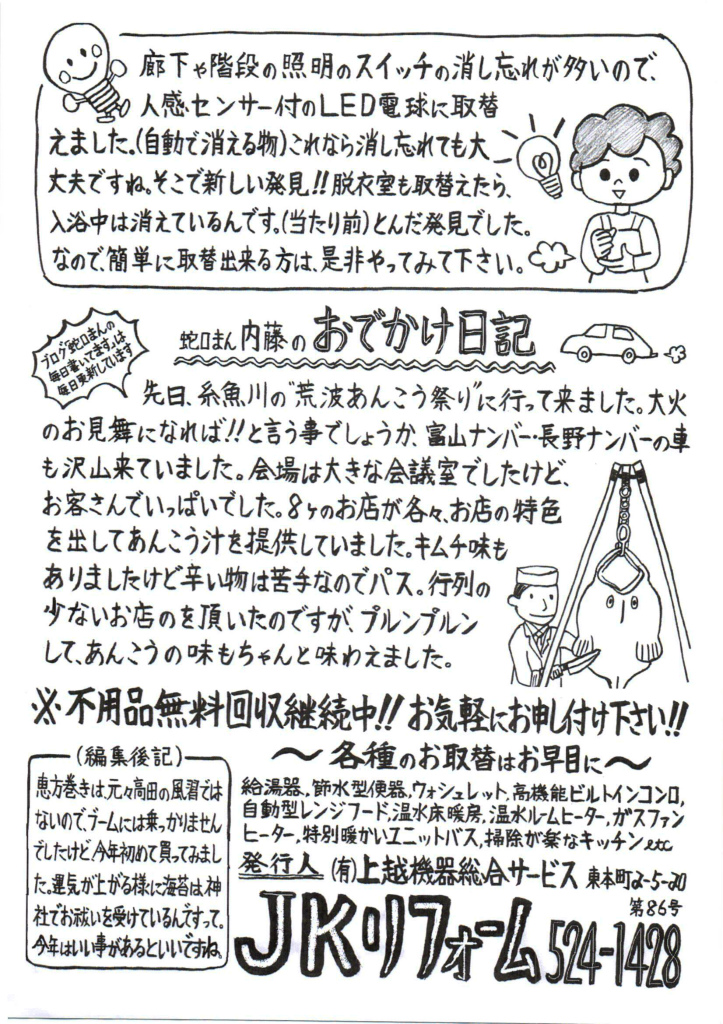 廊下や階段の照明のスイッチの消し忘れが多いので、
人感センサー付のLED電球に取替
えました。(自動で消える物)これなら消し忘れても大
丈夫ですね。そこで新しい発見!!脱衣室も取替えたら、
入浴中は消えているんです。(当たり前)とんだ発見でした。
なので、簡単に取替出来る方は、是非やってみて下さい。
ブログ「蛇口まんの
毎日書いてます」は
毎日更新しています
蛇口まん内藤のおでかけ日記
先日、糸魚川の"荒波あんこう祭り"に行って来ました。大火
のお見舞になれば!!と言う事でしょうか、富山ナンバー・長野ナンバーの車
も沢山来ていました。会場は大きな会議室でしたけど、
お客さんでいっぱいでした。8ヶのお店が各々、お店の特色
を出してあんこう汁を提供していました。キムチ味も
ありましたけど辛い物は苦手なのでパス。行列の
少ないお店のを頂いたのですが、プルンプルン
して、あんこうの味もちゃんと味わえました。
※不用品無料回収継続中!!お気軽にお申し付け下さい!!
(編集後記)
恵方巻きは元々高田の風習では
ないので、ブームには乗っかりません
でしたけど、今年初めて買ってみまし
た。運気が上がる様に海苔は、神
社でお祓いを受けているんですって。
今年はいい事があるといいですね。
〜各種のお取替はお早目に〜
給湯器、節水型便器、ウォシュレット、高機能ビルトインコンロ、
自動型レンジフード、温水床暖房、温水ルームヒーター、ガスファン
ヒーター、特別暖かいユニットバス、掃除が楽なキッチン etc
発行人 (有)上越機器総合サービス 東本町2-5-20
第86号
JKリフォーム 524-1428